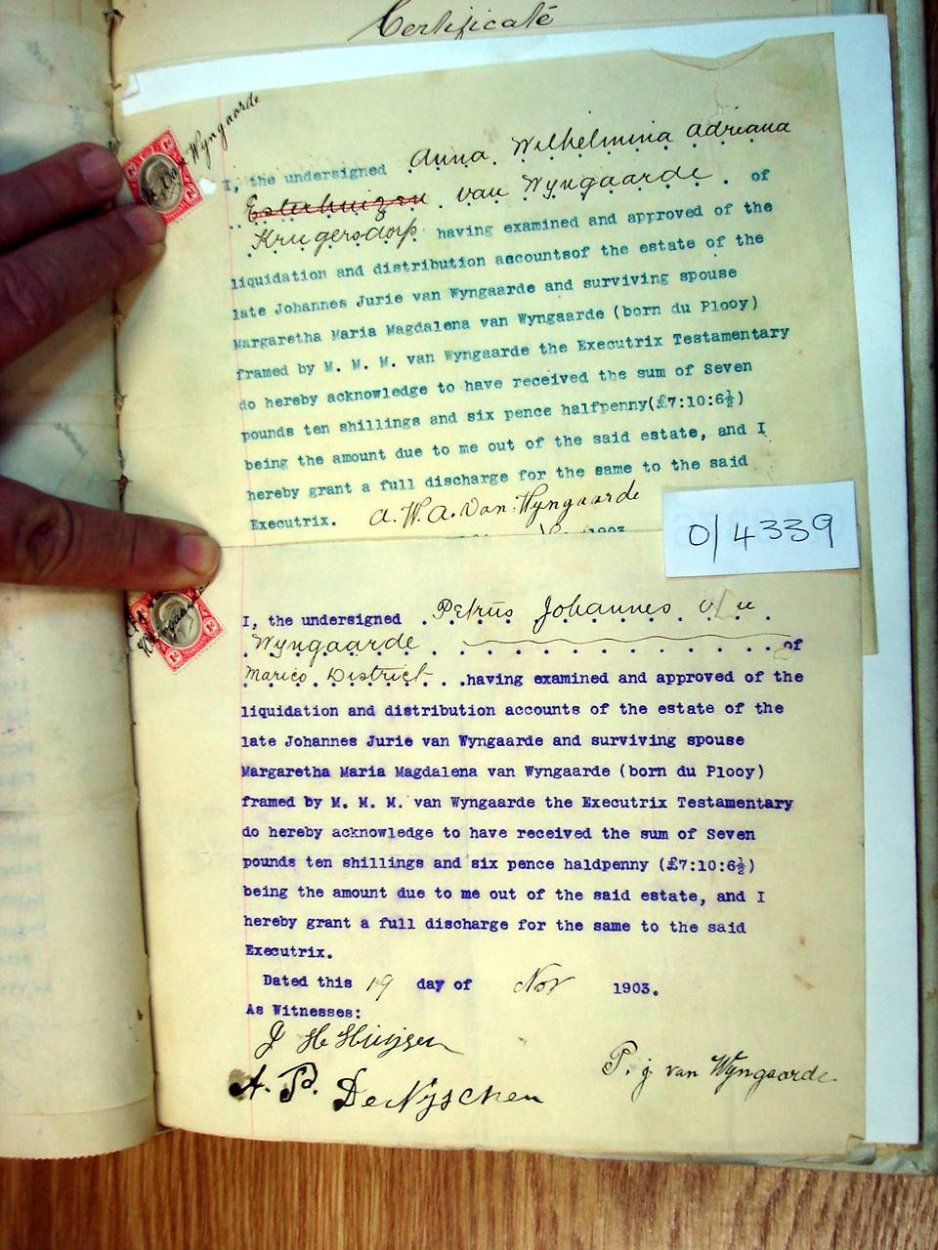 Certificate
van Wyngaarde
I, the undersigned Anna Wilhelmina Adriana
Esterhuizen van Wyngaarde of
Krugersdorp having examined and approved of the
liquidation and distribution aecountsof the estate of the
late Johannes Jurie van Wyngaarde and surviving spouse
Margaretha Maria Magdalena van Wyngaarde (born du Plooy)
framed by M. M. M. van Wyngaarde the Executrix Testamentary
do hereby acknowledge to have received the sum of Seven
pounds ten shillings and six pence halfpenny(£7:10:6½)
being the amount due to me out of the said estate, and I
hereby grant a full discharge for the same to the said
Executrix. A. W. A. van Wyngaarde
1903
O/4339
I, the undersigned Petrus Johannes
Wyngaarde of
Marico District having examined and approved of the
liquidation and distribution accounts of the estate of the
late Johannes Jurie van Wyngaarde and surviving spouse
Margaretha Maria Magdalena van Wyngaarde (born du Plooy)
framed by M. M. M. van Wyngaarde the Executrix Testamentary
do hereby acknowledge to have received the sum of Seven
pounds ten shillings and six pence haldpenny (£7:10:6½)
being the amount due to me out of the said estate, and I
hereby grant a full discharge for the same to the said
Executrix.
Dated this 19 day of Nov 1903.
As Witnesses:
J H Huijsen
P. J. van Wyngaarde
A. P. DeNyschen